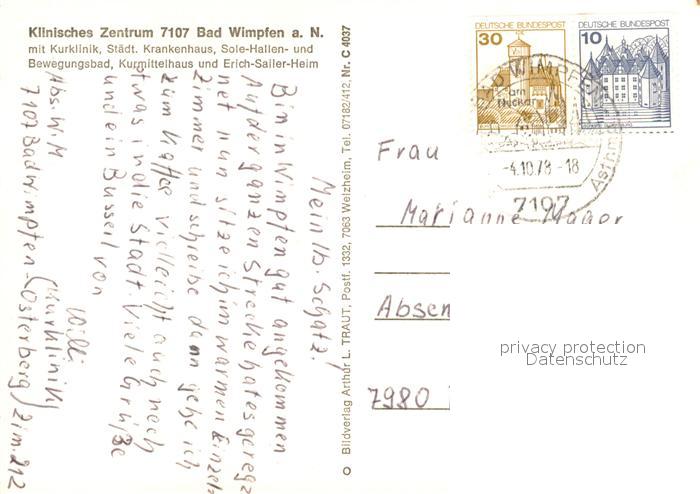 Klinisches Zentrum 7107 Bad Wimpfen a. N.
mit Kurklinik, Städt. Krankenhaus, Sole-Hallen- und
Bewegungsbad, Kurmittelhaus und Erich-Sailer-Heim
Mein lb. Schatz!
Bin in Wimpfen gut angekommen.
Auf der ganzen Strecke hat es gereg=
net nun sitze ich im warmen Einzel=
zimmer und schreibe dann gehe ich
zum Kaffee vielleicht auch noch
etwas in die Stadt. Viele Grüße
und ein Bussel von
Willi
Abs. W. M
7107 Bad Wimpfen (Kurklinik)
Osterberg / Zim. 212
Bildverlag Arthur L. TRAUT, Postf. 1332, 7063 Welzheim, Tel. 07182/412 Nr. C 4037
DEUTSCHE BUNDESPOST
30
DEUTSCHE BUNDESPOST
10
BAD WIMPFEN
am
Neckar
-4.10.78-18
7107
Frau
Marianne
Absen
7980
privacy protection
Datenschutz